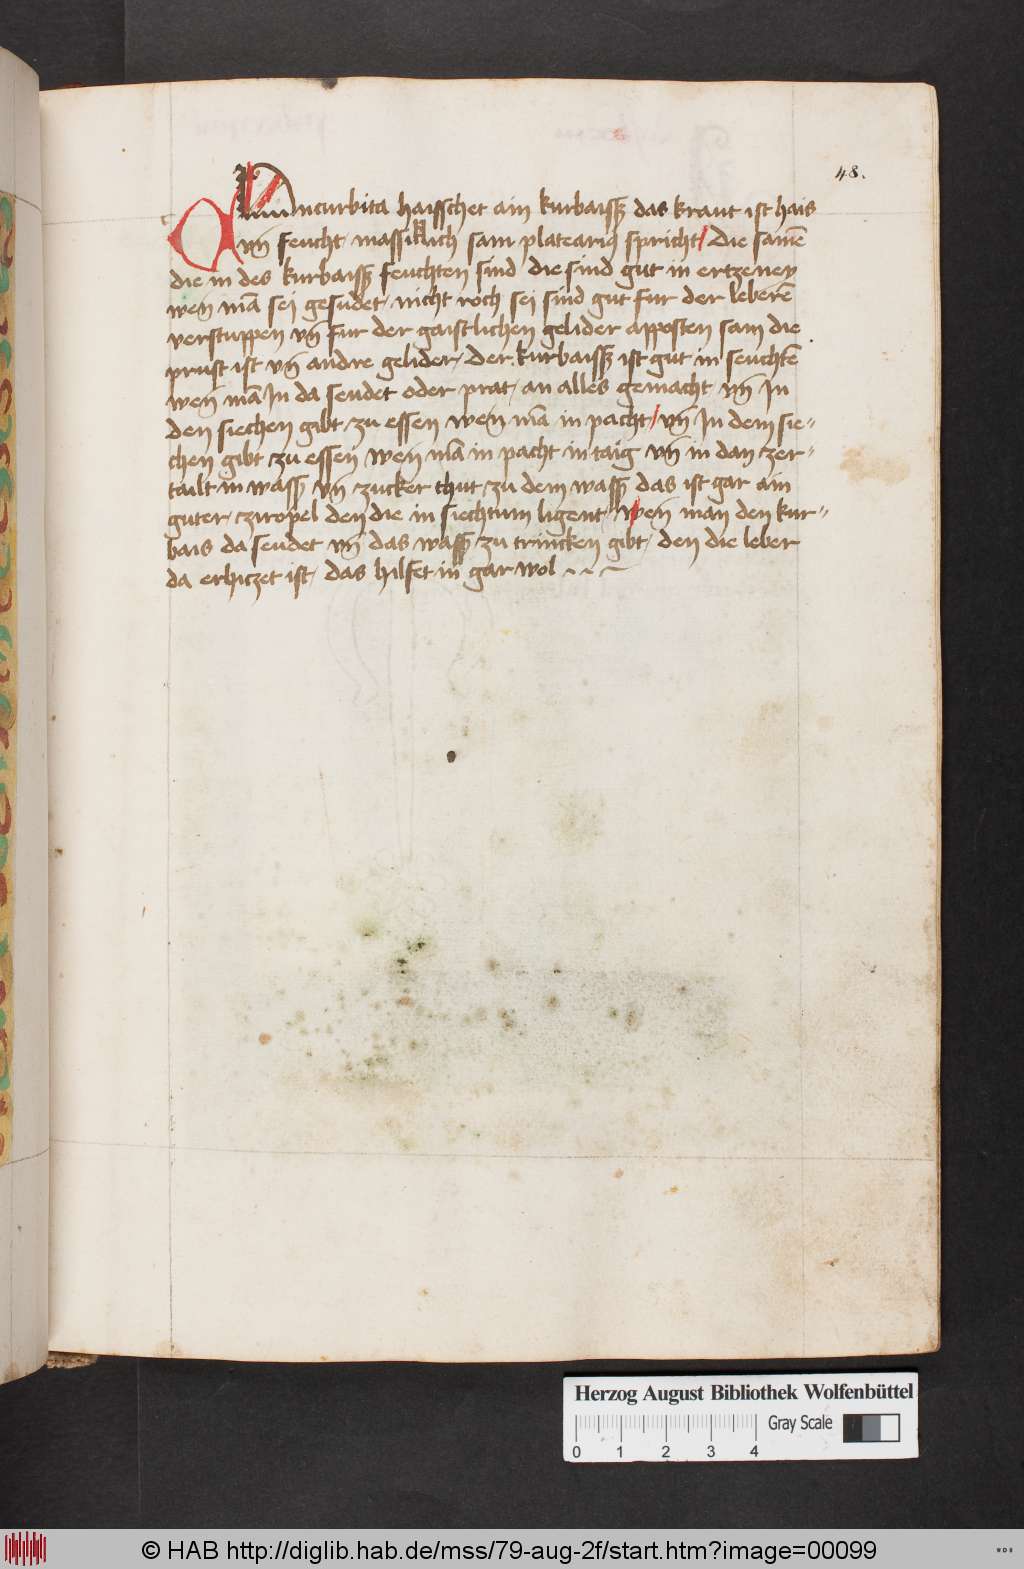 48.
Cucurbita haisschet ain kurbaissz das kraut ist hais
vn̄ feucht / massiklich sam plateariꝰ spricht / Die samē
die in des kurbaissz feuchten sind die sind gut in ertzeney
wen mā sei gesudet / nicht roch sei sind gut fur der leberē
verstuppen vn̄ fur der gaistlichen gelider apposten sam die
prust ist vn̄ andre gelider / Der kurbaissz ist gut in seuchtē
wen mā In da seudet oder prat / an alles gemacht vn̄ In
den siechen gibt zu essen wen mā in pacht / vn̄ In dem sie-
chen gibt zu essen wen mā in pacht in taig vn̄ in dan zer-
tailt in wassz vn̄ zucker thut zu dem wassz das ist gar ain
guter / czuropel den die in siechtum ligent / Wen man den kur-
bais da seudet vn̄ das wassz zu trincken gibt / den die leber
da erhiczet ist / das hilfet in gar wol ~ ~ ~
Herzog August Bibliothek Wolfenbüttel
Gray Scale
0 1 2 3 4
© HAB http://diglib.hab.de/mss/79-aug-2f/start.htm?image=00099